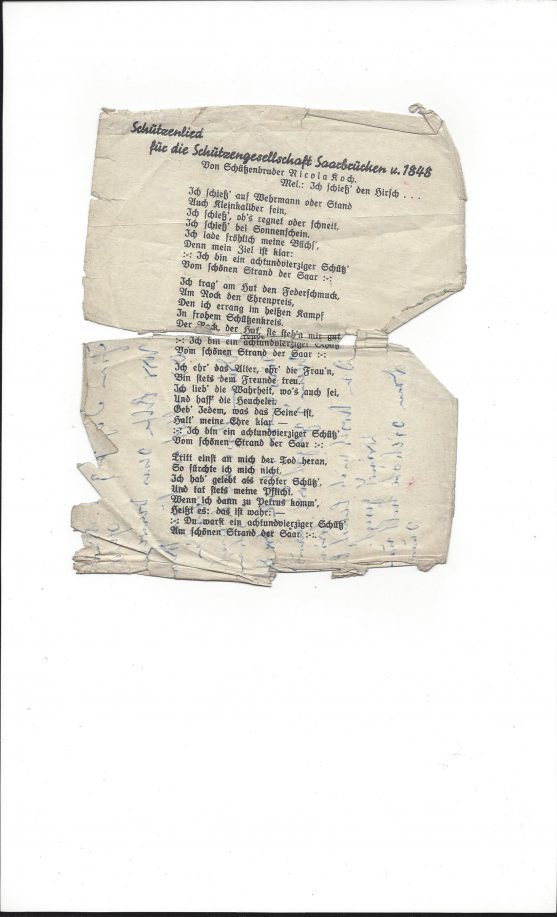 Schützenlied
für die Schützengesellschaft Saarbrücken v. 1848
Von Schützenbruder Nicola Koch.
Mel.: Ich schieß' den Hirsch . . .
Ich schieß' auf Wehrmann oder Stand
Auch Kleinkaliber fein,
Ich schieß', ob's regnet oder schneit,
Ich schieß' bei Sonnenschein.
Ich lade fröhlich meine Büchs',
Denn mein Ziel ist klar:
:-: Ich bin ein achtundvierziger Schütz'
Vom schönen Strand der Saar :-:
Ich trag' am Hut den Federschmuck,
Am Rock den Ehrenpreis,
Den ich errang im heißen Kampf
In frohem Schützenkreis.
Der Rock, der Hut, sie steh'n mir gut
:-: Ich bin ein achtundvierziger Schütz'
Vom schönen Strand der Saar :-:
Ich ehr' das Alter, ehr' die Frau'n,
Bin stets dem Freunde treu.
Ich lieb' die Wahrheit, wo's auch sei,
Und hass' die Heuchelei.
Geb' Jedem, was das Seine ist,
Halt' meine Ehre klar —
:-: Ich bin ein achtundvierziger Schütz'
Vom schönen Strand der Saar :-:
Tritt einst an mich der Tod heran,
So fürchte ich mich nicht.
Ich hab' gelebt als rechter Schütz',
Und tat stets meine Pflicht.
Wenn ich dann zu Petrus komm',
Heißt es: das ist wahr: —
:-: Du warst ein achtundvierziger Schütz'
Am schönen Strand der Saar :-: